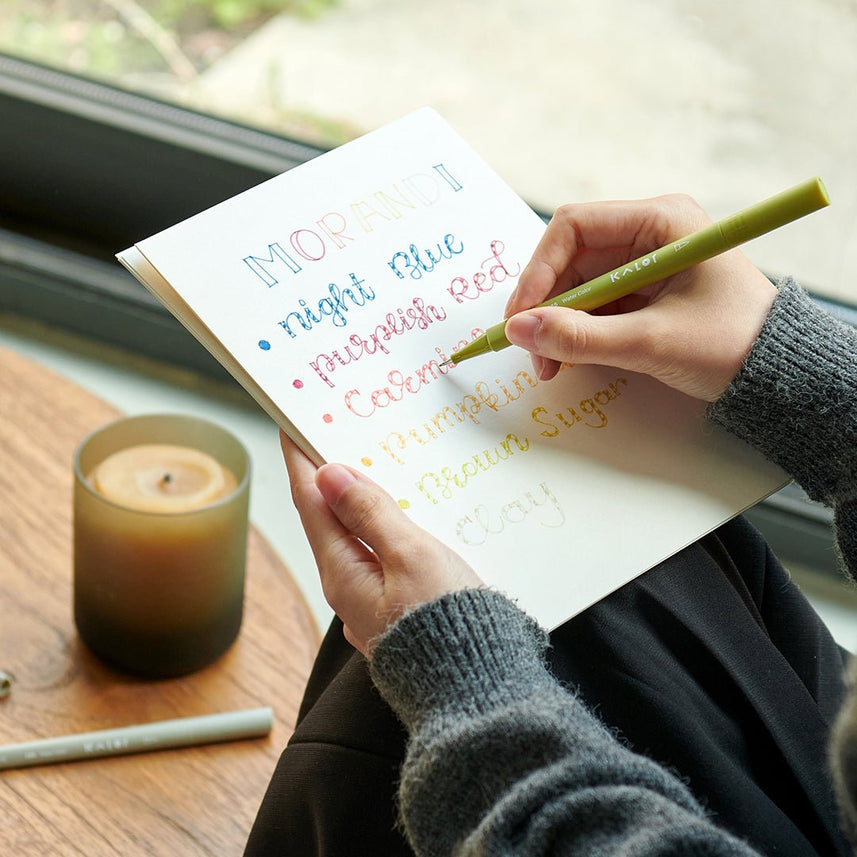 MORANDI
night Blue
purplish Red
Carmine
pumpkin
Brown Sugar
Clay
KALOR
Water Color
KALOR